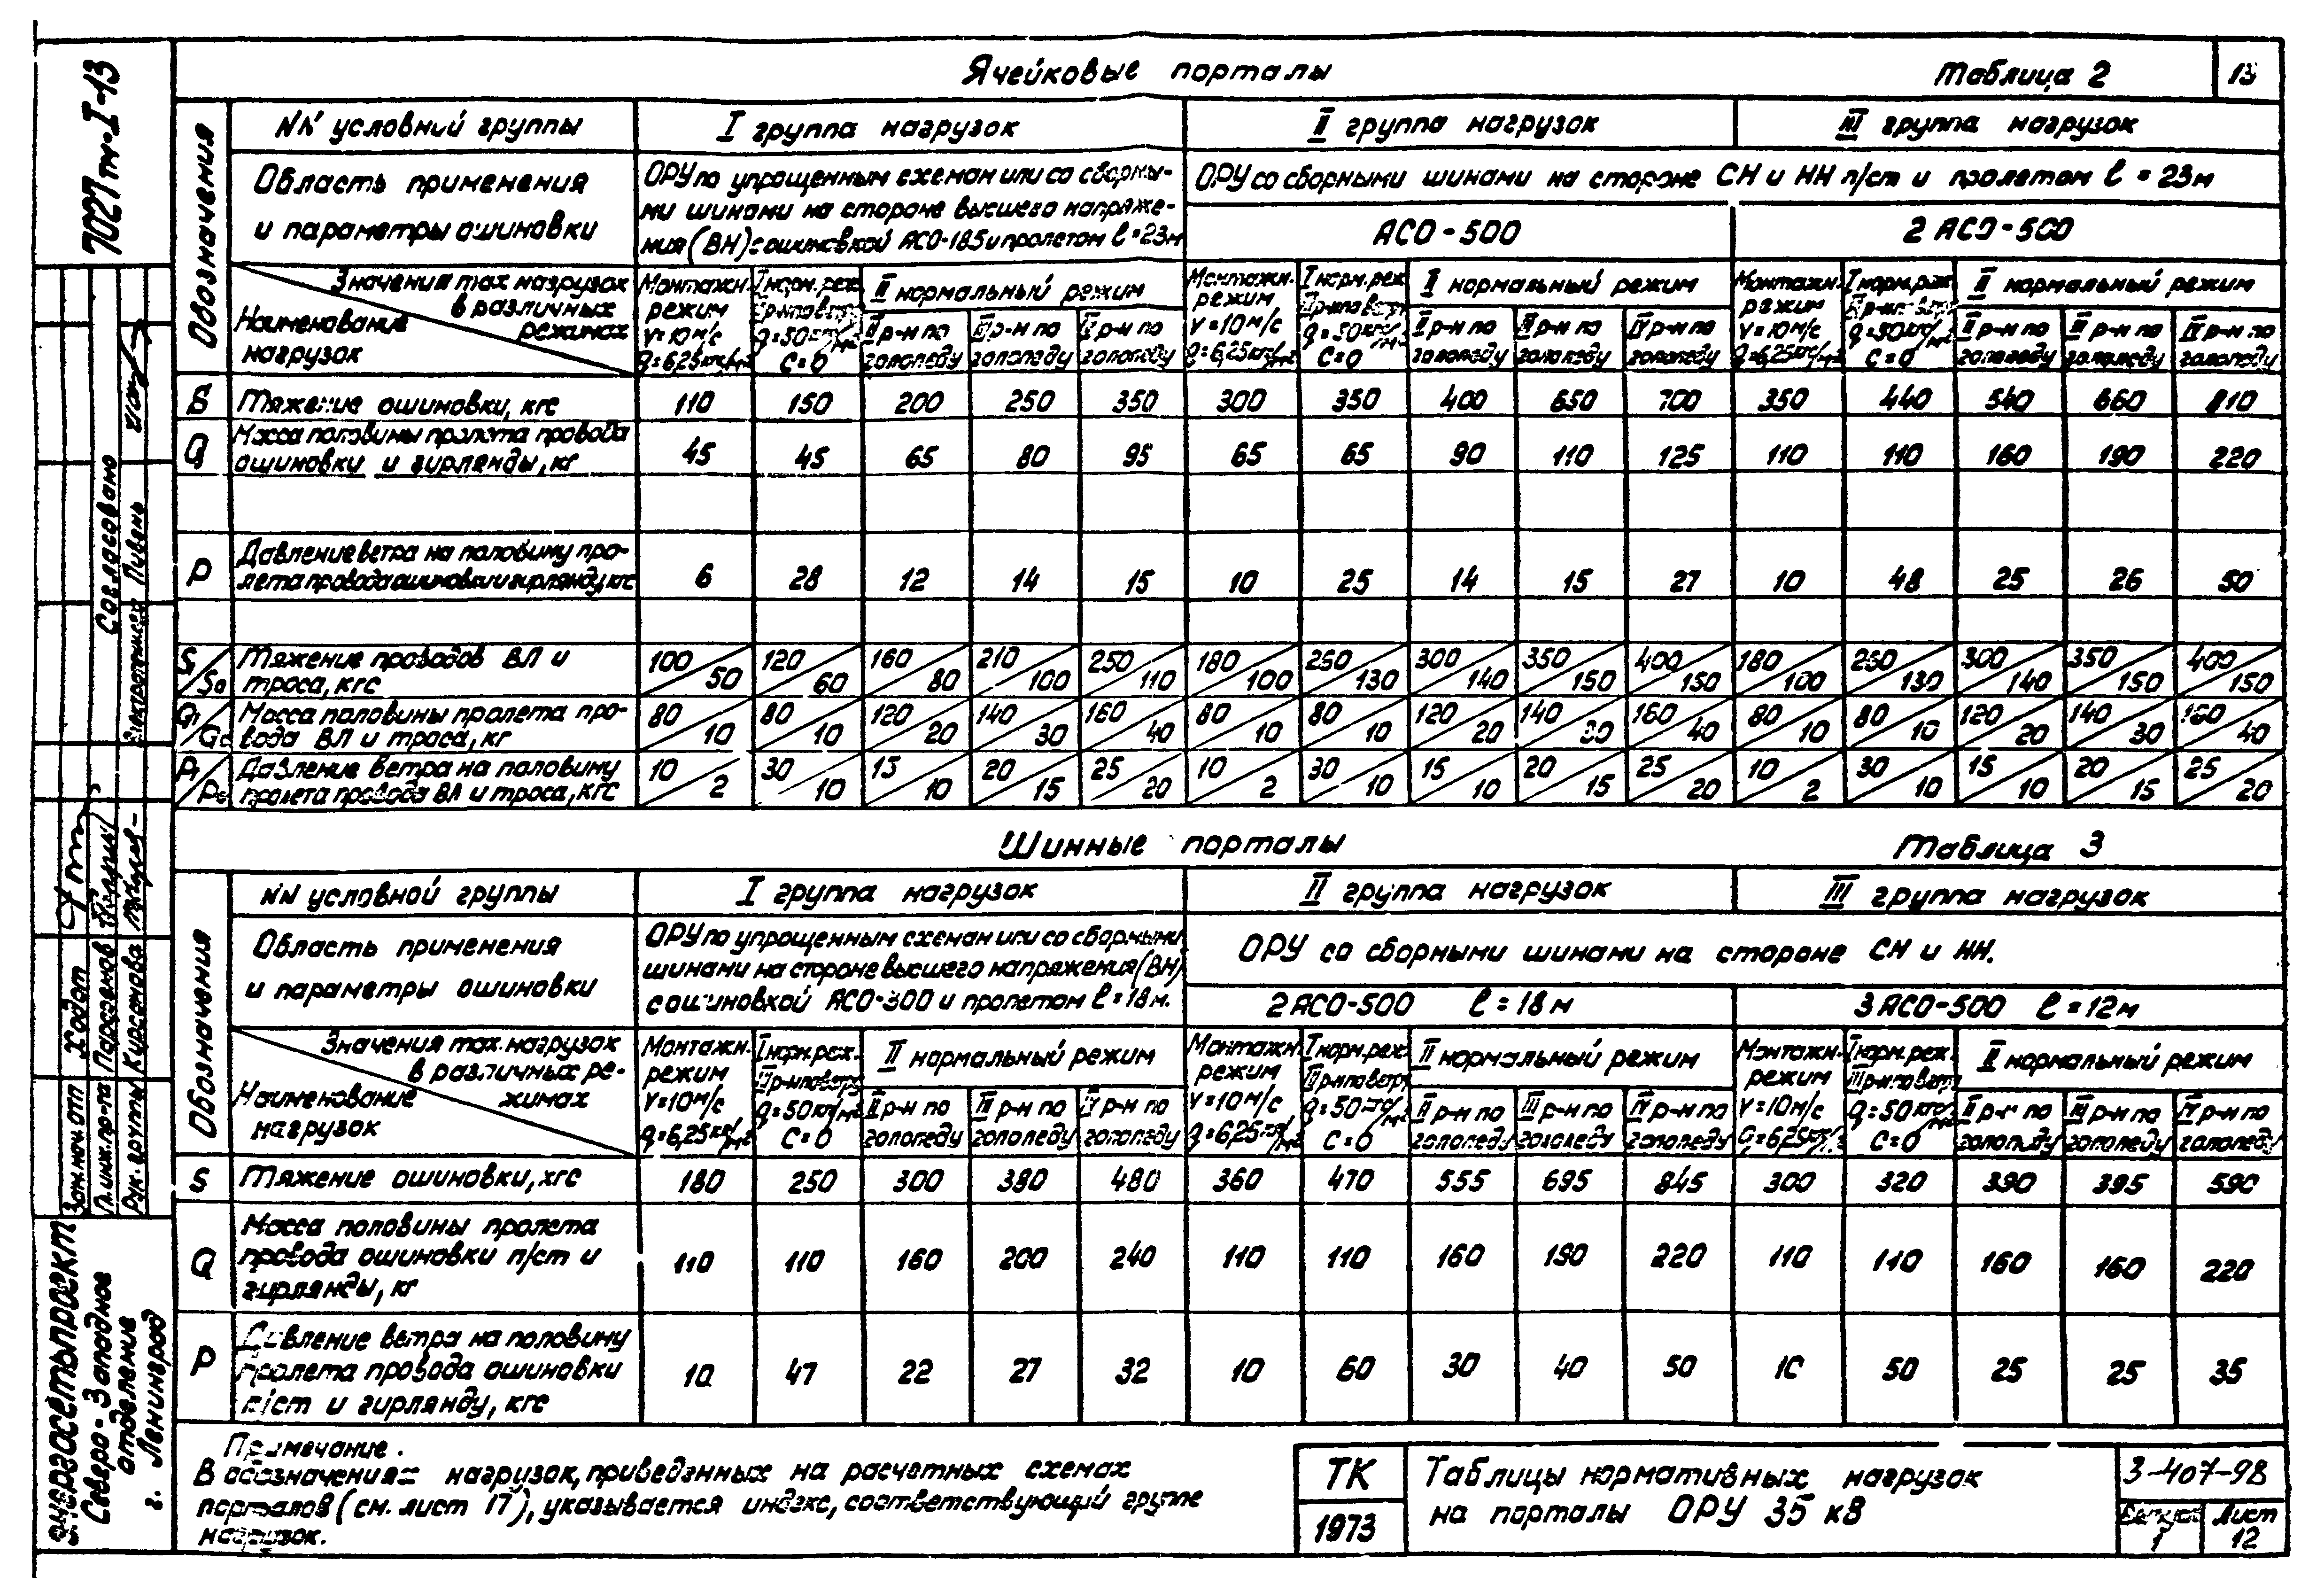 Ячейковые порталы Таблица 2 13
Обозначения
NN условний группы I группа нагрузок II группа нагрузок III группа нагрузок
Область применения
и параметры ошиновки
ОРУ по упрощенным схемам или со сборны-
ми шинами на стороне высшего напряже-
ния (ВН) с ошиновкой АСО-185 и пролетом l=23м
ОРУ со сборными шинами на стороне СН и НН п/ст и пролетом l = 23м
АСО-500 2 АСО-500
Значения max нагрузок
в различных
режимах
Наименование
нагрузок
Монтажн. режим V=10м/с q=6,25кгс/м² I норм. реж. III р-н по ветру q=50кгс/м² C=0 II нормальный режим II р-н по гололеду III р-н по гололеду IV р-н по гололеду
Монтажн. режим V=10м/с q=6,25кгс/м² I норм. реж. III р-н по ветру q=50кгс/м² C=0 II нормальный режим II р-н по гололеду III р-н по гололеду IV р-н по гололеду
Монтажн. режим V=10м/с q=6,25кгс/м² I норм. реж. III р-н по ветру q=50кгс/м² C=0 II нормальный режим II р-н по гололеду III р-н по гололеду IV р-н по гололеду
S Тяжение ошиновки, кгс 110 150 200 250 350 300 350 400 650 700 350 440 540 660 810
Q Масса половины пролета провода
ошиновки и гирлянды, кг 45 45 65 80 95 65 65 90 110 125 110 110 160 190 220
P Давление ветра на половину про-
лета провода ошиновки и гирлянду, кгс 6 28 12 14 15 10 25 14 15 27 10 48 25 26 50
S1/S0 Тяжение проводов ВЛ и
троса, кгс 100/50 120/60 160/80 210/100 250/110 180/100 250/130 300/140 350/150 400/150 180/100 250/130 300/140 350/150 400/150
Q1/Q0 Масса половины пролета про-
вода ВЛ и троса, кг 80/10 80/10 120/20 140/30 160/40 80/10 80/10 120/20 140/30 160/40 80/10 80/10 120/20 140/30 160/40
P1/P0 Давление ветра на половину
пролета провода ВЛ и троса, кгс 10/2 30/10 15/10 20/15 25/20 10/2 30/10 15/10 20/15 25/20 10/2 30/10 15/10 20/15 25/20
Шинные порталы Таблица 3
Обозначения
NN условной группы I группа нагрузок II группа нагрузок III группа нагрузок
Область применения
и параметры ошиновки
ОРУ по упрощенным схемам или со сборными
шинами на стороне высшего напряжения (ВН)
с ошиновкой АСО-300 и пролетом l=18м.
ОРУ со сборными шинами на стороне СН и НН.
2 АСО-500 l=18м 3 АСО-500 l=12м
Значения max. нагрузок
в различных ре-
жимах
Наименование
нагрузок
Монтажн. режим V=10м/с q=6,25кгс/м² I норм. реж. III р-н по ветру q=50кгс/м² C=0 II нормальный режим II р-н по гололеду III р-н по гололеду IV р-н по гололеду
Монтажн. режим V=10м/с q=6,25кгс/м² I норм. реж. III р-н по ветру q=50кгс/м² C=0 II нормальный режим II р-н по гололеду III р-н по гололеду IV р-н по гололеду
Монтажн. режим V=10м/с q=6,25кгс/м² I норм. реж. III р-н по ветру q=50кгс/м² C=0 II нормальный режим II р-н по гололеду III р-н по гололеду IV р-н по гололеду
S Тяжение ошиновки, кгс 180 250 300 380 480 360 470 555 695 845 300 320 390 395 590
Q Масса половины пролета
провода ошиновки п/ст и
гирлянды, кг 110 110 160 200 240 110 110 160 190 220 110 110 160 160 220
P Давление ветра на половину
пролета провода ошиновки
п/ст и гирлянду, кгс 10 47 22 27 32 10 60 30 40 50 10 50 25 25 35
Примечание.
В обозначениях нагрузок, приведенных на расчетных схемах
порталов (см. лист 17), указывается индекс, соответствующий группе
нагрузок.
ТК
1973
Таблицы нормативных нагрузок
на порталы ОРУ 35 кВ
3-407-98
Выпуск 1
Лист 12
7027тм-I-13
Согласовано
Электротехнич. Пивань
Зам. нач. отп Ходот
Гл. инж. пр-та Парсенов
Рук. группы Курсанова
Энергосетьпроект
Северо-Западное
отделение
г. Ленинград